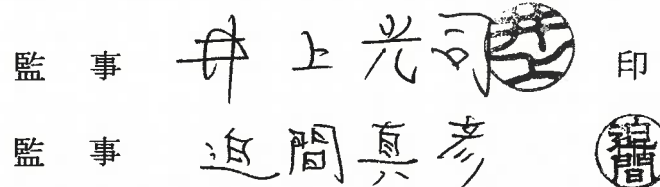 監 事 井上光司 井上 印
監 事 迫間真彦 迫間